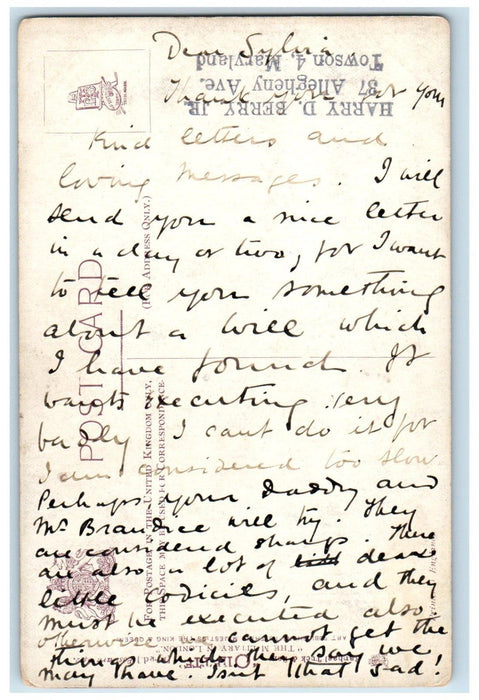 Dear Sylvia,
Thank you for your
kind letters and
loving messages. I will
send you a nice letter
in a day or two, for I want
to tell you something
about a Will which
I have found. It
wants executing very
badly I cant do it for
I am considered too slow
Perhaps your Daddy and
Mr Brandice will try. They
are considered sharp. There
are also a lot of dear
little codicils, and they
must be executed also,
otherwise we cannot get the
things which they say we
may have. Isn't that sad!
HARRY D BERRY JR.
37 Allegheny Ave.
Towson 4, Maryland
POST CARD
(FOR ADDRESS ONLY.)
FOR POSTAGE IN THE UNITED KINGDOM ONLY,
SPACE MAY BE USED FOR CORRESPONDENCE
"THE MILITARY IN LONDON"